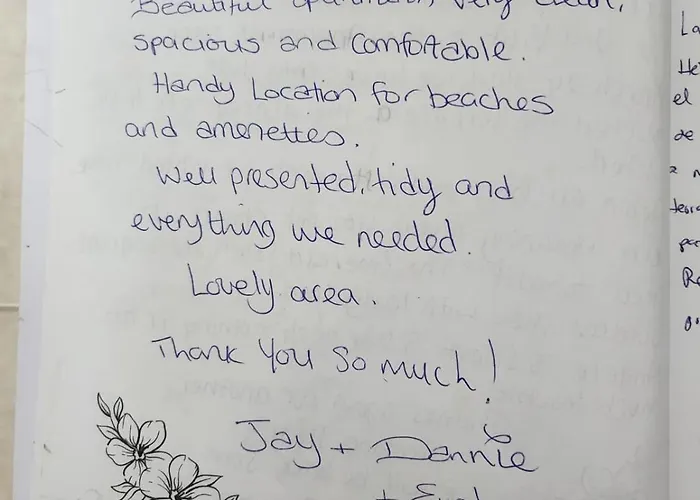 Beautiful apartment, very clean,
spacious and Comfortable.
Handy Location for beaches
and amenettes.
Well presented, tidy and
everything we needed.
Lovely area.
Thank You So much!
Jay + Dannie
+
La
el
de